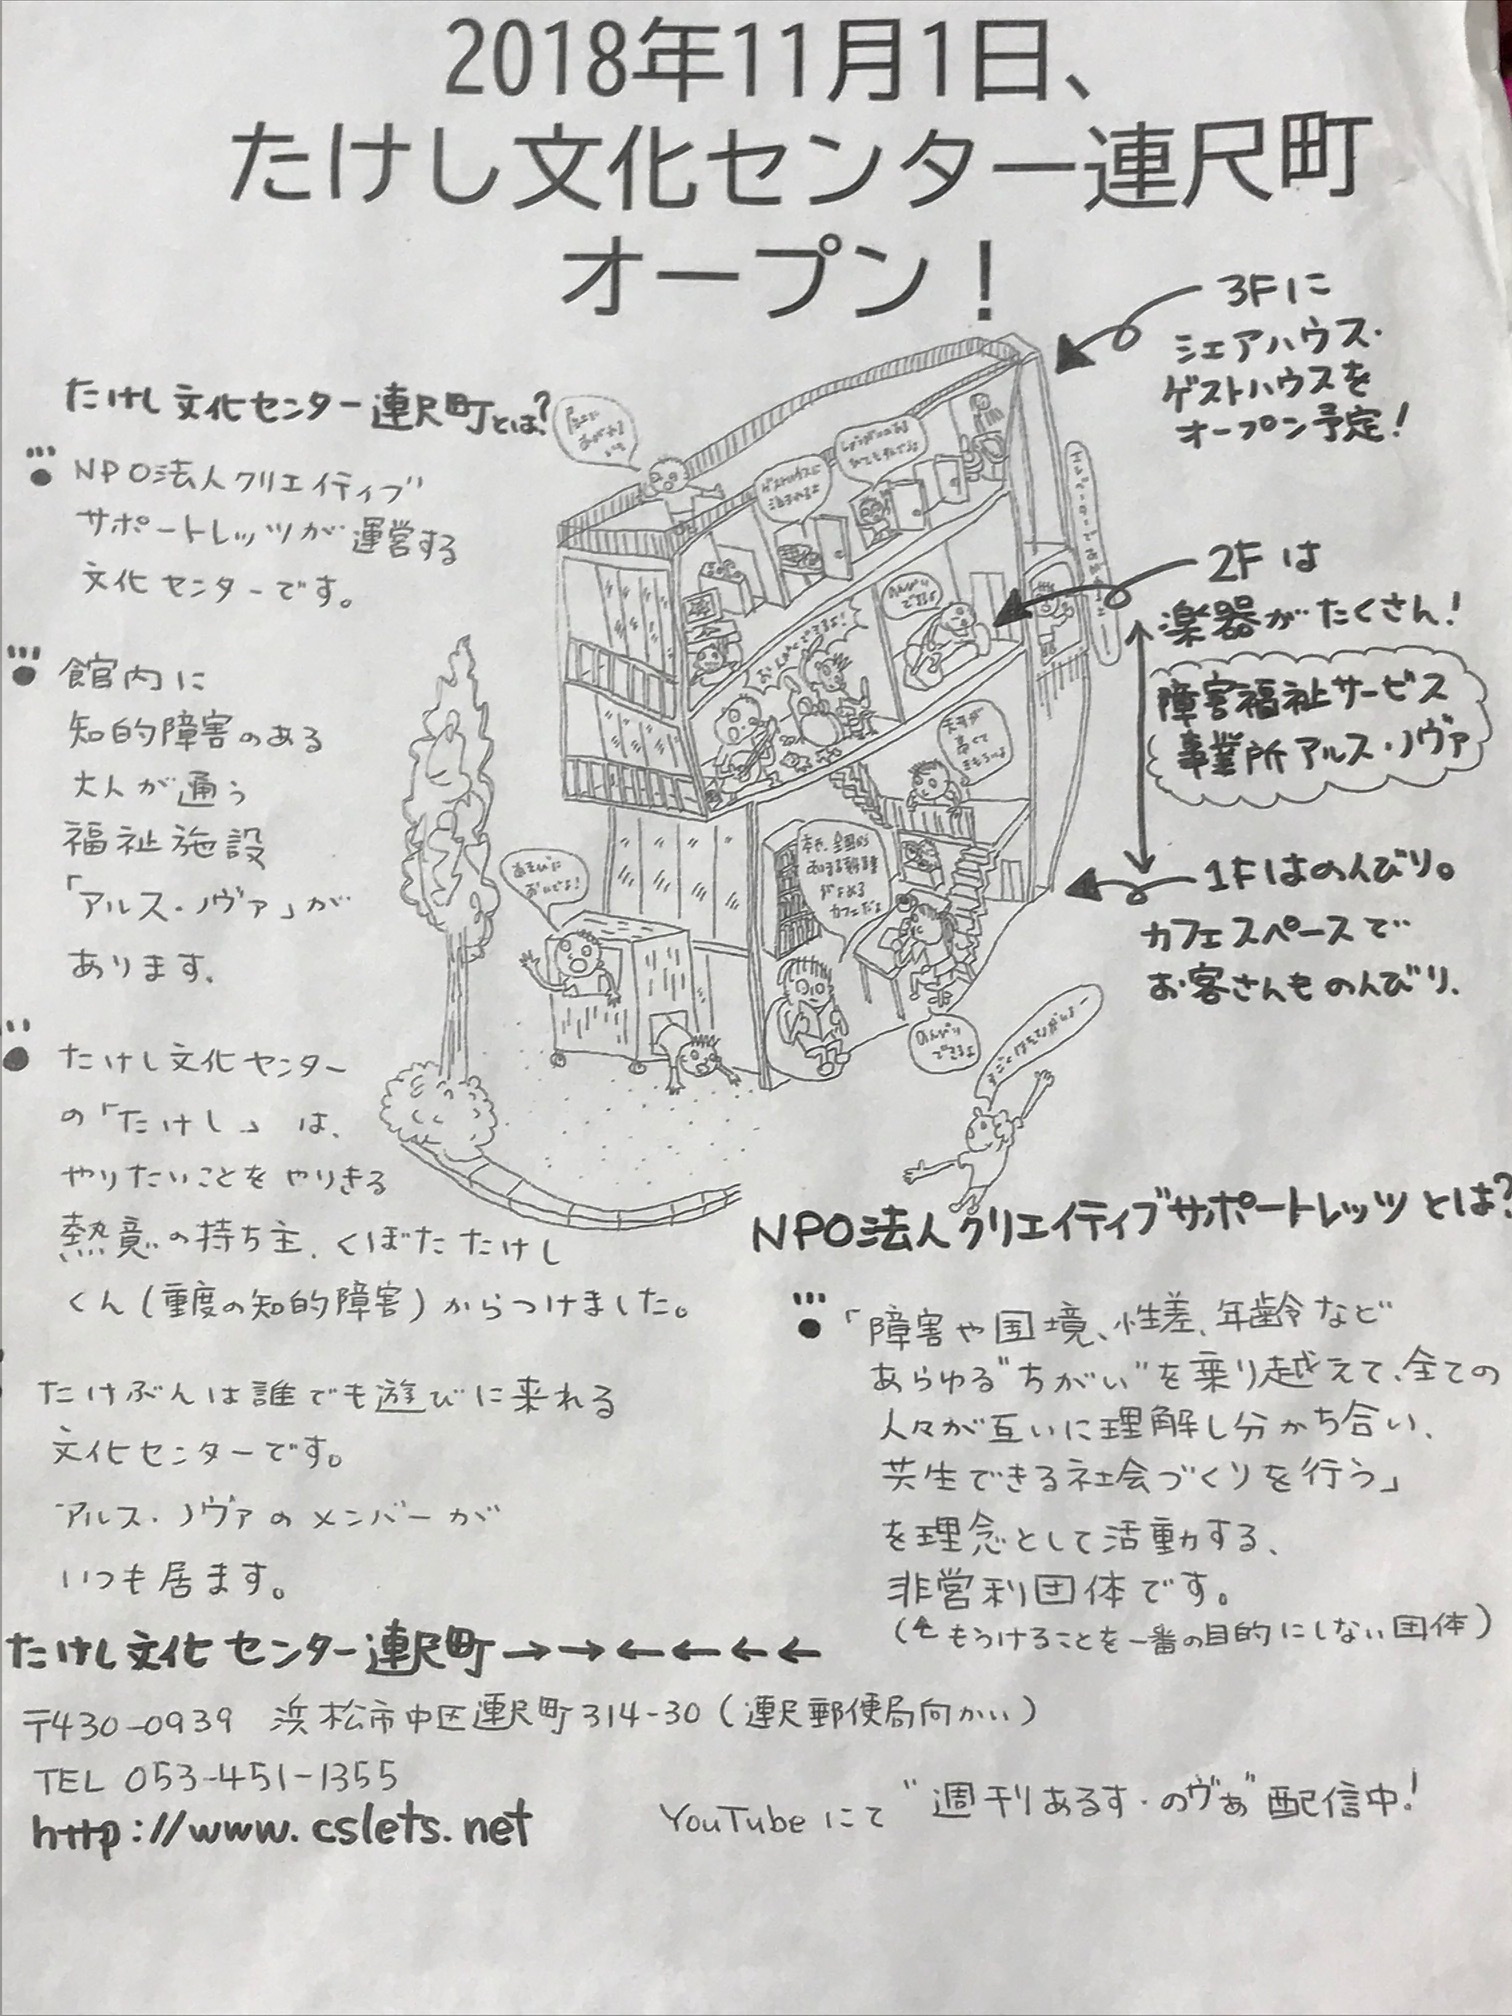 2018年11月1日、
たけし文化センター連尺町
オープン！
3Fに
シェアハウス・
ゲストハウスを
オープン予定！
たけし文化センター連尺町とは？
NPO法人クリエイティブ
サポートレッツが運営する
文化センターです。
2Fは
楽器がたくさん！
障害福祉サービス
事業所アルス・ノヴァ
館内に
知的障害のある
大人が通う
福祉施設
「アルス・ノヴァ」が
あります。
のんびり
できるよ
あそびに
おいでよ！
1Fはのんびり。
カフェスペースで
お客さんものんびり、
のんびり
できるよ
たけし文化センター
の「たけし」は、
やりたいことをやりきる
熱意の持ち主、くぼたたけし
くん(重度の知的障害)からつけました。
たけぶんは誰でも遊びに来れる
文化センターです。
アルス・ノヴァのメンバーが
いつも居ます。
NPO法人クリエイティブサポートレッツとは？
「障害や国境、性差、年齢など
あらゆる"ちがい"を乗り越えて、全ての
人々が互いに理解し分かち合い、
共生できる社会づくりを行う」
を理念として活動する、
非営利団体です。
(↑もうけることを一番の目的にしない団体)
たけし文化センター連尺町→→←←←←
〒430-0939 浜松市中区連尺町314-30(連尺郵便局向かい)
TEL 053-451-1355
http://www.cslets.net
YouTubeにて"週刊あるす・のヴぁ"配信中！